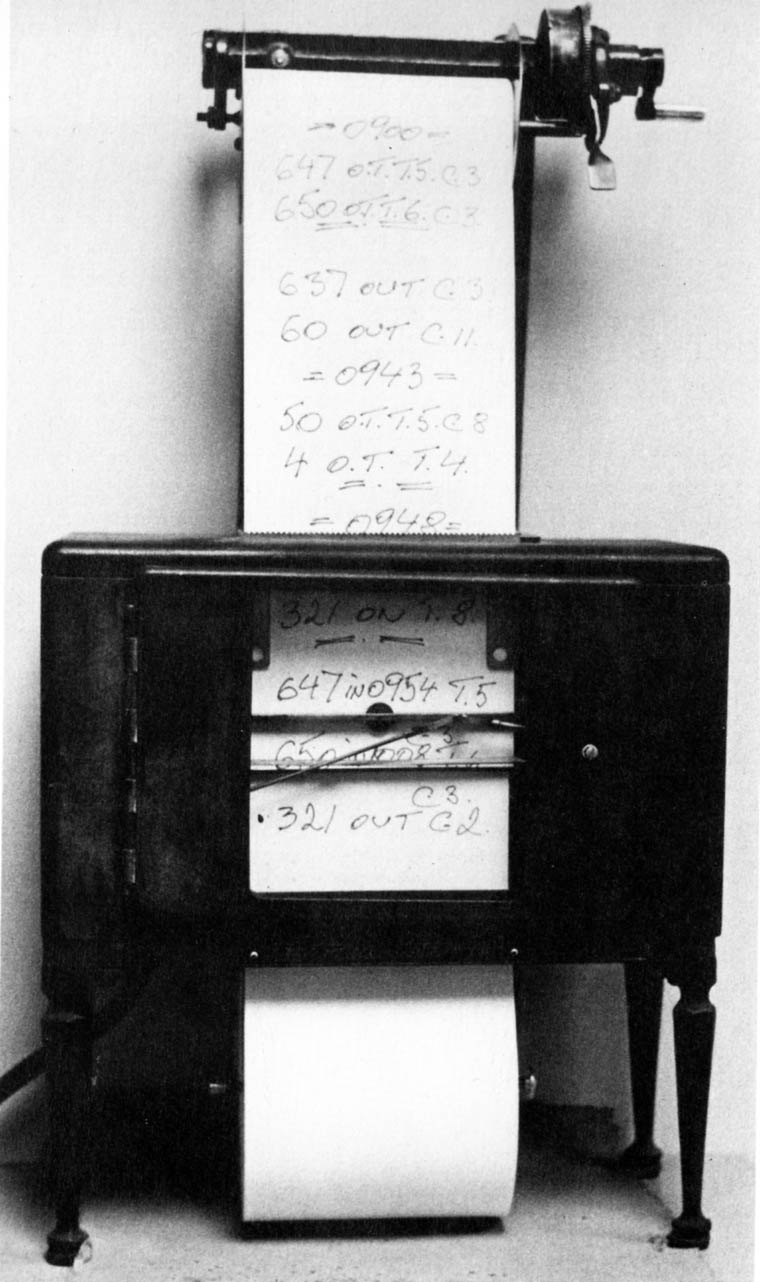 = 0900 =
647 O.T. T.5. C.3
650 O.T. T.6. C.3
637 OUT C.3
60 OUT C.11.
= 0943 =
50 O.T. T.5. C 8
4 O.T. T.4.
= 0948 =
321 ON T. 8.
647 IN 0954 T.5
C 3.
650 in 1008
C 3.
321 OUT C 2.